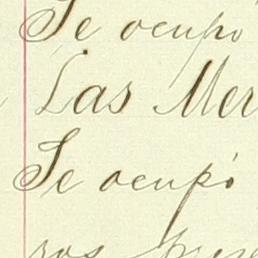 Se ocupó
Las Mer
Se ocupó